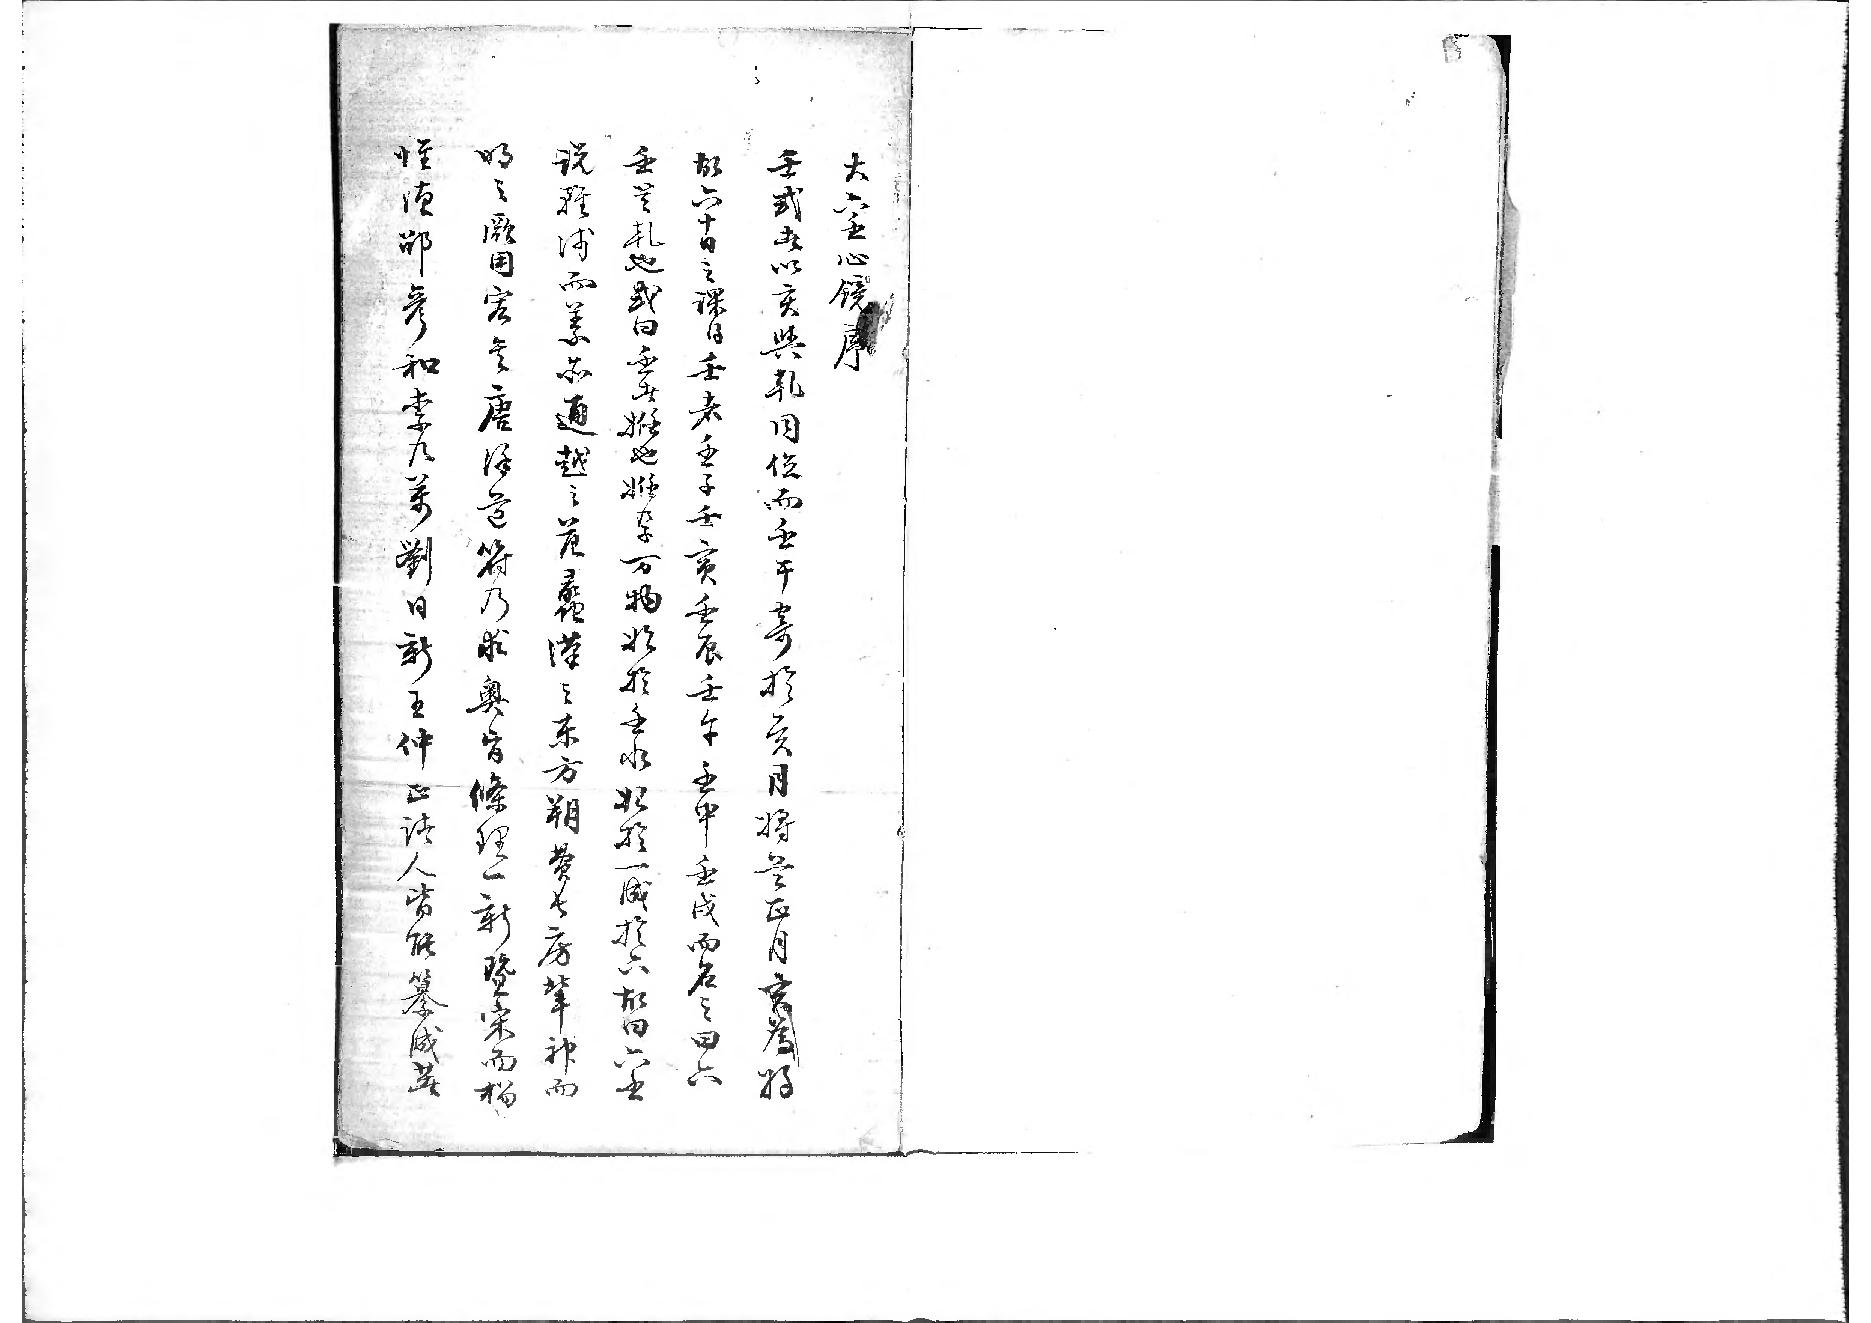 大六壬心鏡序
壬式者以亥與乾同位而壬干寄於亥月將是正月亥為將
故六十日之課日壬者壬子壬寅壬辰壬午壬申壬戌而名之曰六
壬是乾也或曰壬者姙也姙孕万物始於壬水始於一成於六故曰六壬
說雖淺而義亦通越之范蠡漢之東方朔費長房輩神而
明之厥用宏矣唐徐道符乃求奧旨條理一新暨宋而楊
惟德邵彥和李九萬劉日新王仲正諸人皆能纂成其